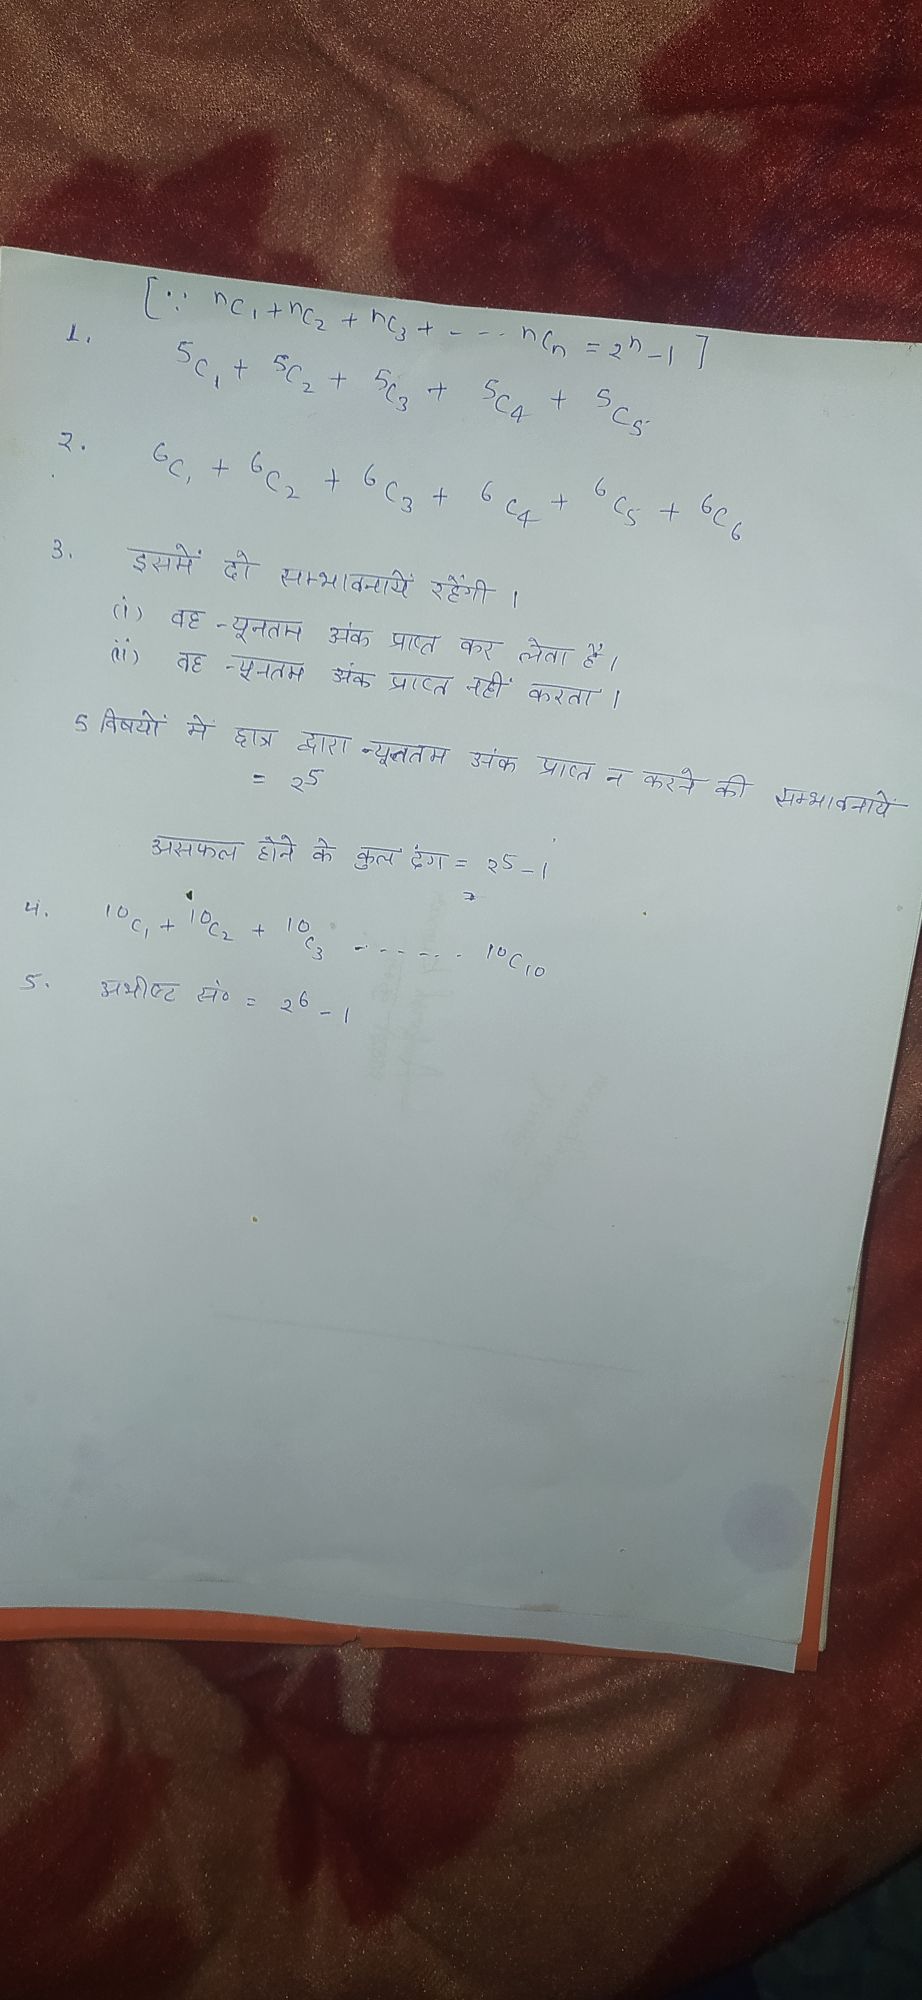 [∵ ⁿC₁ + ⁿC₂ + ⁿC₃ + - - - ⁿCₙ = 2ⁿ - 1 ]
1. ⁵C₁ + ⁵C₂ + ⁵C₃ + ⁵C₄ + ⁵C₅
2. ⁶C₁ + ⁶C₂ + ⁶C₃ + ⁶C₄ + ⁶C₅ + ⁶C₆
3. इसमें दो सम्भावनायें रहेंगी ।
(i) वह न्यूनतम अंक प्राप्त कर लेता है ।
(ii) वह न्यूनतम अंक प्राप्त नहीं करता ।
5 विषयों में छात्र द्वारा न्यूनतम अंक प्राप्त न करने की सम्भावनायें
= 2⁵
असफल होने के कुल ढंग = 2⁵ - 1
4. ¹⁰C₁ + ¹⁰C₂ + ¹⁰C₃ - - - - - - ¹⁰C₁₀
5. अभीष्ट सं० = 2⁶ - 1